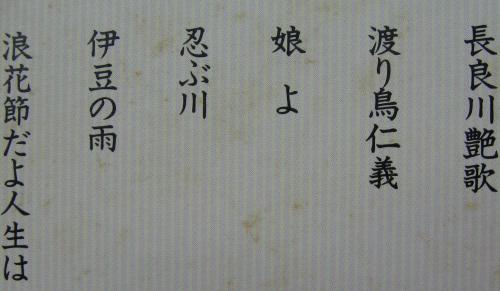 長良川艶歌
渡り鳥仁義
娘よ
忍ぶ川
伊豆の雨
浪花節だよ人生は